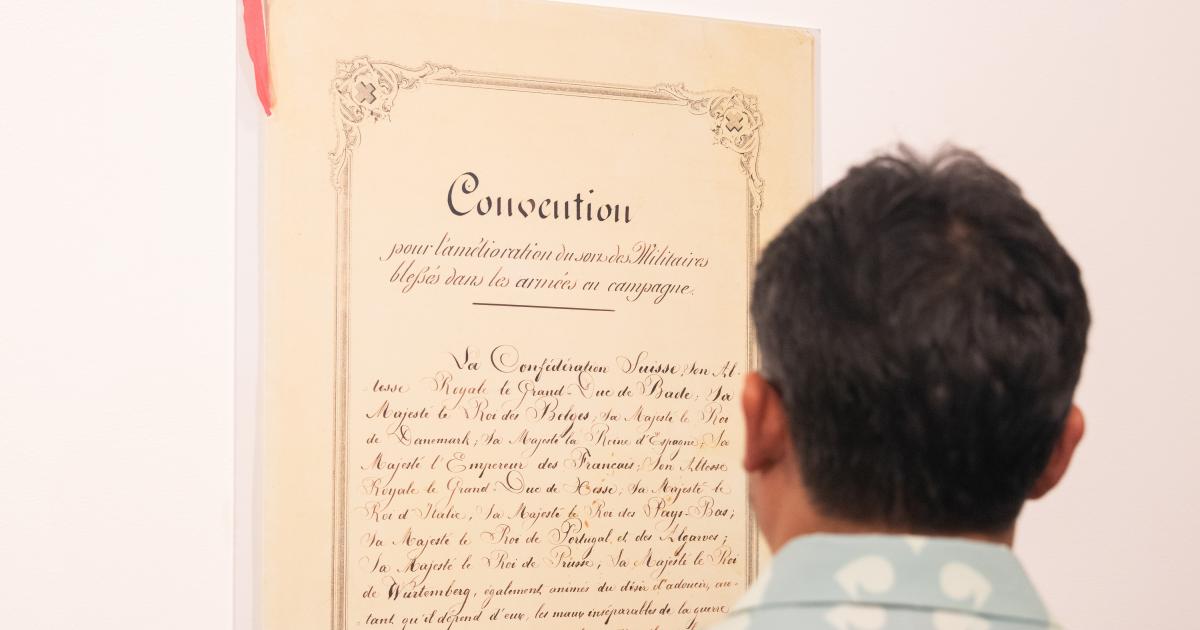 Convention
pour l'amélioration du sort des Militaires
blessés dans les armées en campagne.
La Confédération Suisse; Son Al-
tesse Royale le Grand-Duc de Bade; Sa
Majesté le Roi des Belges; Sa Majesté le Roi
de Danemark; Sa Majesté la Reine d'Espagne; Sa
Majesté l'Empereur des Français; Son Altesse
Royale le Grand-Duc de Hesse; Sa Majesté le
Roi d'Italie; Sa Majesté le Roi des Pays-Bas;
Sa Majesté le Roi de Portugal et des Algarves;
Sa Majesté le Roi de Prusse, Sa Majesté le Roi
de Würtemberg, également animés du désir d'adoucir, au-
tant qu'il dépend d'eux, les maux inséparables de la guerre